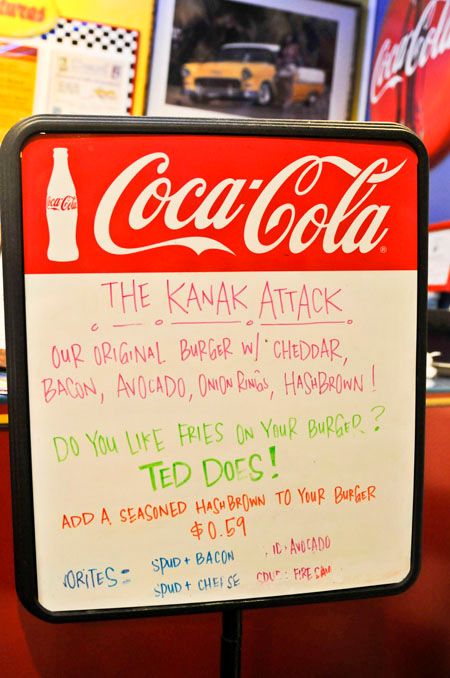 Coca-Cola
Coca-Cola
Coca-Cola
THE KANAK ATTACK
OUR ORIGINAL BURGER W/ CHEDDAR,
BACON, AVOCADO, ONION RINGS, HASHBROWN!
DO YOU LIKE FRIES ON YOUR BURGER?
TED DOES!
ADD A SEASONED HASHBROWN TO YOUR BURGER
$0.59
ORITES= SPUD + BACON + AVOCADO
SPUD + CHEESE FIRE